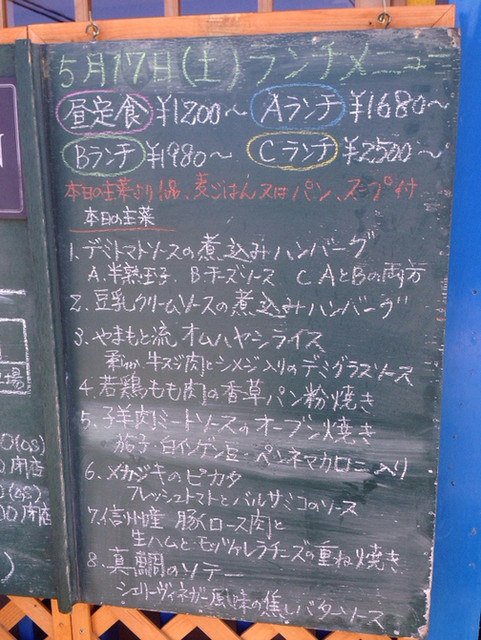 5月17日(土)ランチメニュー
昼定食 ¥1200〜 Aランチ ¥1680〜
Bランチ ¥1980〜 Cランチ ¥2500〜
本日の主菜より1品、麦ごはん又はパン、スープ付
本日の主菜
1. デミトマトソースの煮込みハンバーグ
A.半熟玉子 Bチーズソース C AとBの両方
2. 豆乳クリームソースの煮込みハンバーグ
3. やまもと流 オムハヤシライス
牛スジ肉とシメジ入りのデミグラスソース
4. 若鶏もも肉の香草パン粉焼き
5. 子羊肉ミートソースのオーブン焼き
茄子・白インゲン豆・ペンネマカロニ入り
6. メカジキのピカタ
フレッシュトマトとバルサミコのソース
7. 信州産 豚ロース肉と
生ハムとモッツァレラチーズの重ね焼き
8. 真鯛のソテー
シェリーヴィネガー風味の焦しバターソース
場
(OS)
閉店
(OS)
閉店